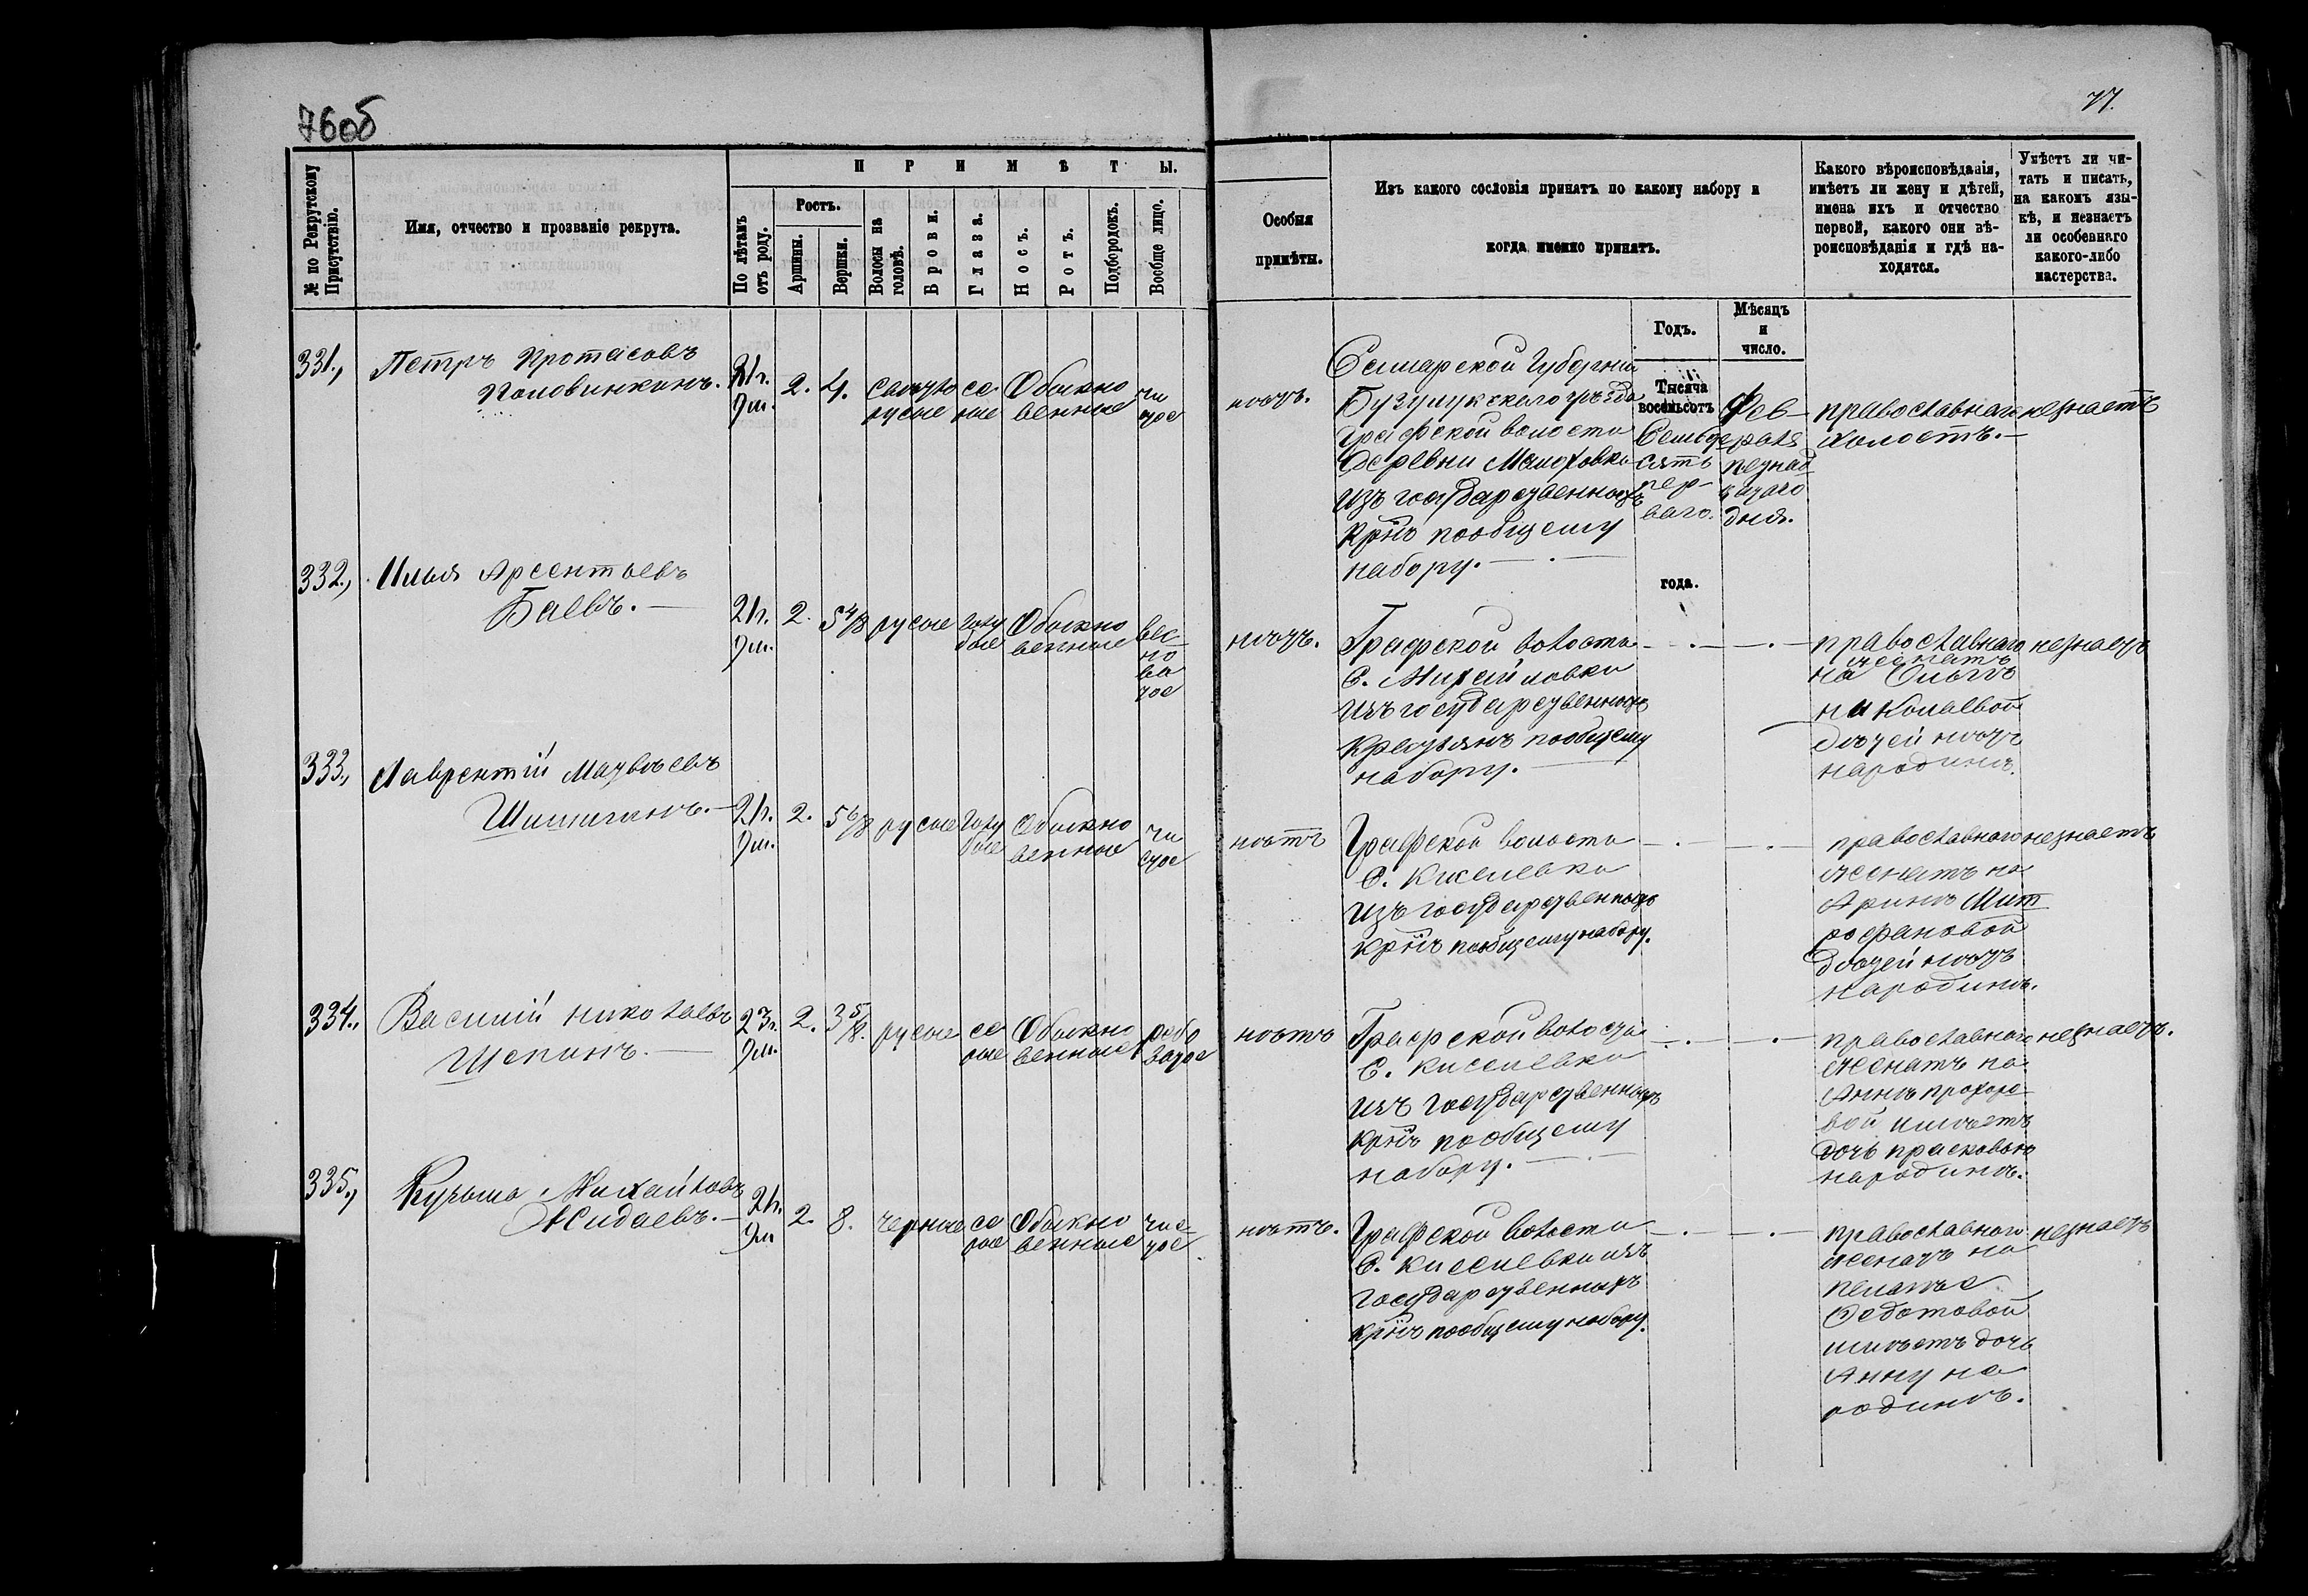 76об
77.
№ по Рекрутскому Присутствію.
Имя, отчество и прозваніе рекрута.
ПРИМѢТЫ.
По лѣтамъ отъ роду.
Ростъ.
Аршины.
Вершки.
Волосы на головѣ.
Брови.
Глаза.
Носъ.
Ротъ.
Подбородокъ.
Вообще лицо.
Особыя примѣты.
Изъ какого сословія принятъ по какому набору и
когда именно принятъ.
Годъ.
Мѣсяцъ и число.
Какого вѣроисповѣданія,
имѣетъ ли жену и дѣтей,
имена ихъ и отчество
первой, какого они вѣ-
роисповѣданія и гдѣ на-
ходятся.
Умѣетъ ли чи-
тать и писать,
на какомъ язы-
кѣ, и незнаетъ
ли особеннаго
какого-либо
мастерства.
331.,
Петръ Протасовъ
Половинкинъ.
21г.
9м.
2.
4.
светло
русые
се
рые
Обыкно
венные
чи
стое
нѣтъ.
Самарской Губерніи
Бузулукскаго уѣзда
Графской волости
Деревни
изъ государственныхъ
крнъ пообщему
набору.
Тысяча
восемьсотъ
Семьде
сятъ
пер-
ваго.
года.
Фев-
раля
пезнад
цатаго
дня.
православнаго
холостъ.
незнаетъ
332.,
Илья Арсентьевъ
Баевъ.
21г.
9м.
2.
5 4/8
русые
голу
бые
Обыкно
венные
вес
но
ва
тое
нѣтъ.
Графской волости
С. Михайловки
изъ государственныхъ
крестьянъ пообщему
набору.
православнаго
женатъ
на Ольгѣ
николаевой
дѣтей нѣтъ
народинѣ.
незнаетъ
333.,
Лаврентій Матвѣевъ
Шишиганъ.
21г.
9м.
2.
5 6/8
русые
голу
бые
Обыкно
венные
чи
стое
нѣтъ
Графской волости
С. Киселевки
изъ государственныхъ
крнъ пообщему набору.
православнаго
женатъ на
Аринѣ Мит
рофановой
дѣтей нѣтъ
народинѣ.
незнаетъ
334.,
Василій николаевъ
Щепинъ.
23г.
9м.
2.
3 5/8.
русые
се
рые
Обыкно
венные
рябо
ватое
нѣтъ
Графской волости
С. Киселевки
изъ государственныхъ
крнъ пообщему
набору.
православнаго
женатъ на
Аннѣ прохоро
вой имѣетъ
дочь прасковью
народинѣ.
незнаетъ.
335.,
Кузьма Михайловъ
Жидаевъ.
21г.
9м
2.
8.
черные
се
рые
Обыкно
венные
чис
тое
нѣтъ.
Графской волости
С. Киселевки изъ
государственныхъ
крнъ пообщему набору.
православнаго
женатъ на
пелагѣе
Федотовой
имѣетъ дочь
Анну на
родинѣ.
незнаетъ